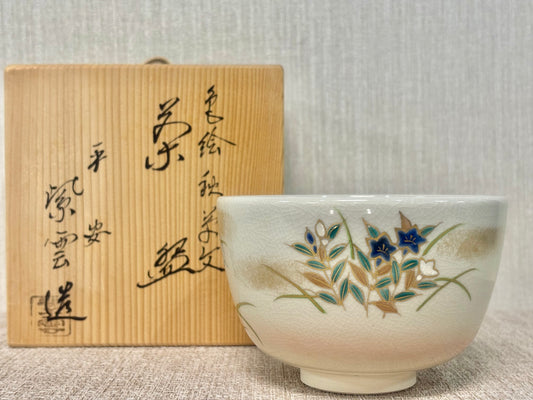 色絵秋草文
茶盌
平安
紫雲造